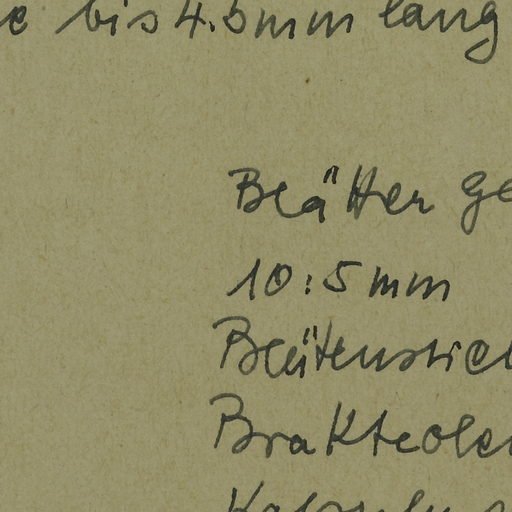 bis 4.5mm lang
Blätter ge
10:5mm
Blütenstiel
Brakteolen
Kapsel